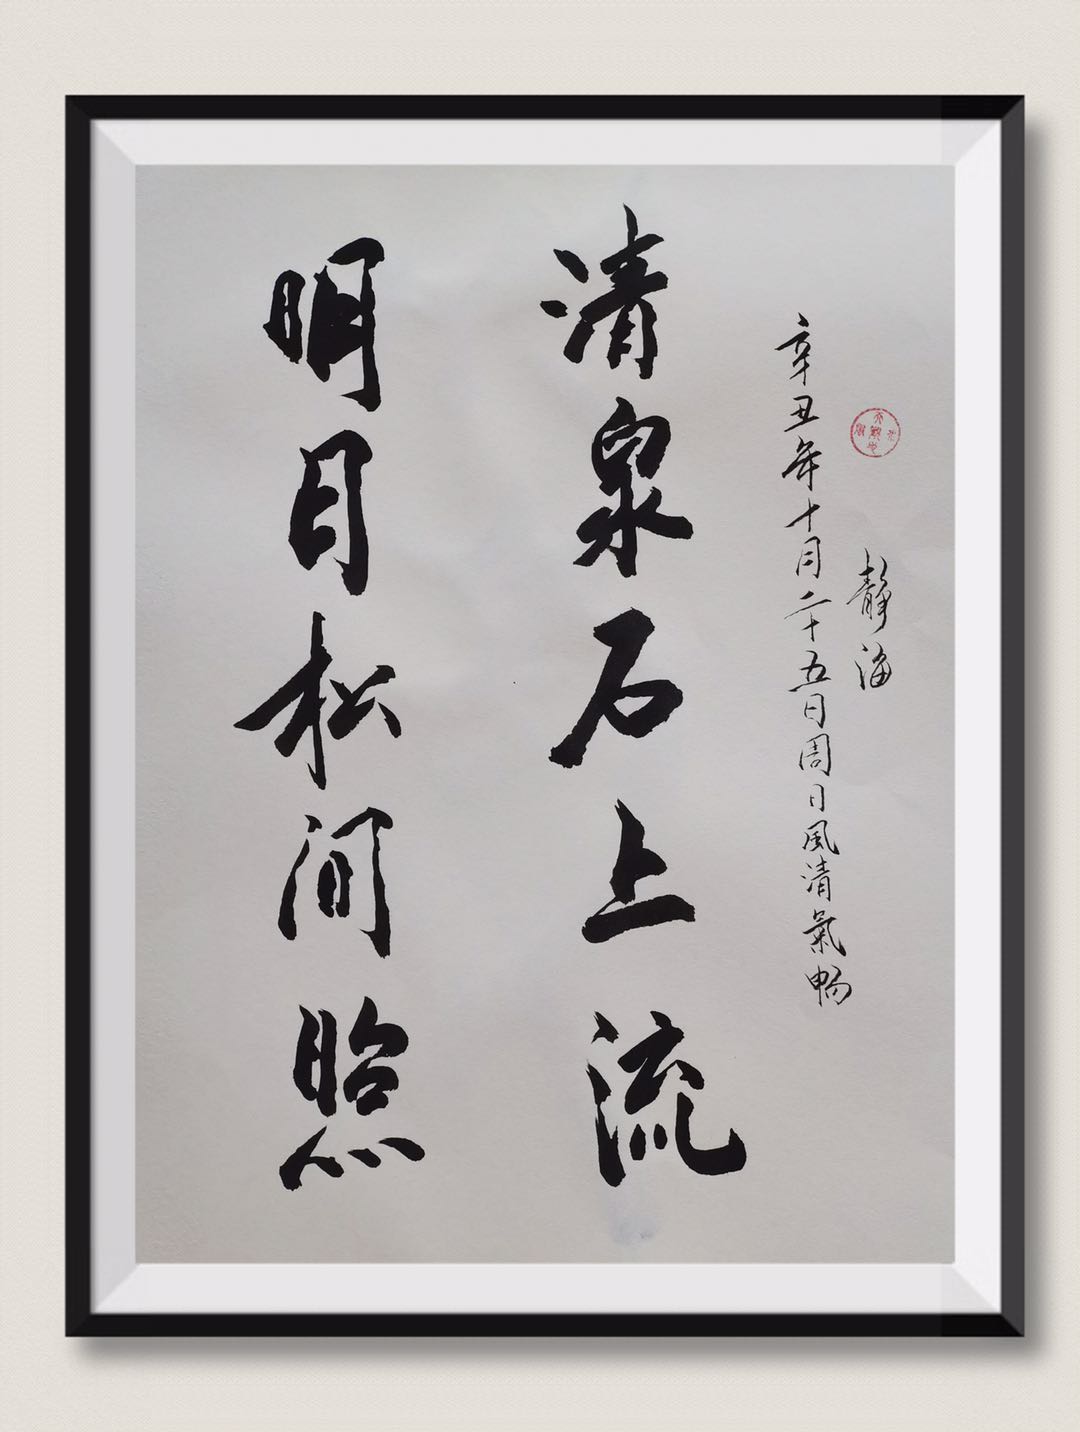 明月松间照
清泉石上流
辛丑年十月二十五日周日風清氣畅
静海